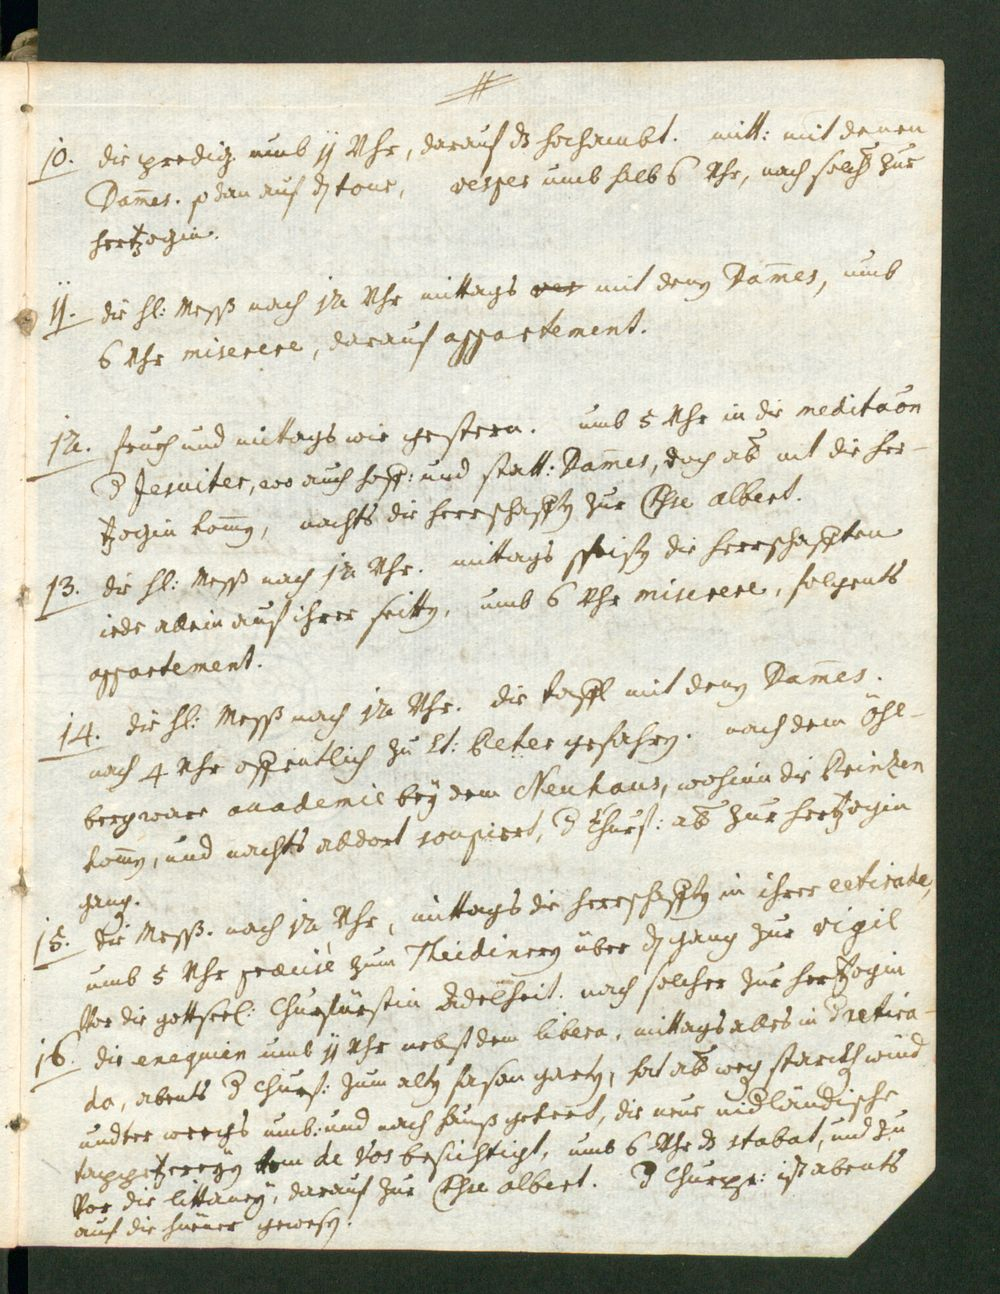 10. die predig umb 11 Uhr, darauf dz hochambt. mitt: mit denen
Dames. p dan auf dz tour, vesper umb halb 6 Uhr, nach solch zur
hertzogin.
11. die hl: Mess nach 12 Uhr mittags mit denen Dames, umb
6 Uhr miserere, darauf appartement.
12. frueh und mittags wie gestern. umb 5 Uhr in die meditaon
d Jesuiter, wo auch hoff: und statt: Dames, doch ab nit die her-
tzogin komen, nachts die herrschafften zur Chre albert.
13. die hl: Mess nach 12 Uhr. mittags speisten die herrschafften
iede allein auf ihrer seitten, umb 6 Uhr miserere, folgents
appartement.
14. die hl: Mess nach 12 Uhr. die taffl mit denen Dames.
nach 4 Uhr offentlich zu St: Peter gefahren. nach dem Öhl-
berg ware accademie bey dem Neuhaus, wohin die Prinzen
komen, und nachts aldort soupiert, d Churf: ab zur hertzogin
gang.
15. die Mess. nach 12 Uhr, mittags die herrschafften in ihrer retirade,
umb 5 Uhr præcisè zum Theidinern über dz gang zur vigil
vor die gottseel: Churfürstin Adelheit. nach solcher zur hertzogin
16. die exequien umb 11 Uhr nebst dem libera, mittags alles in d retira-
da, abents d Churf: zum alten fasan garten, hat ab weg starckh wind
undter weegs umb: und nach hauß gekert, die neue nidländische
tappetzereyen de Vos besichtigt, umb 6 Uhr dz stabat, und
vor die littaney, darauf zur Chre albert. d Churpr: ist abents
auf die hüener gewesen.